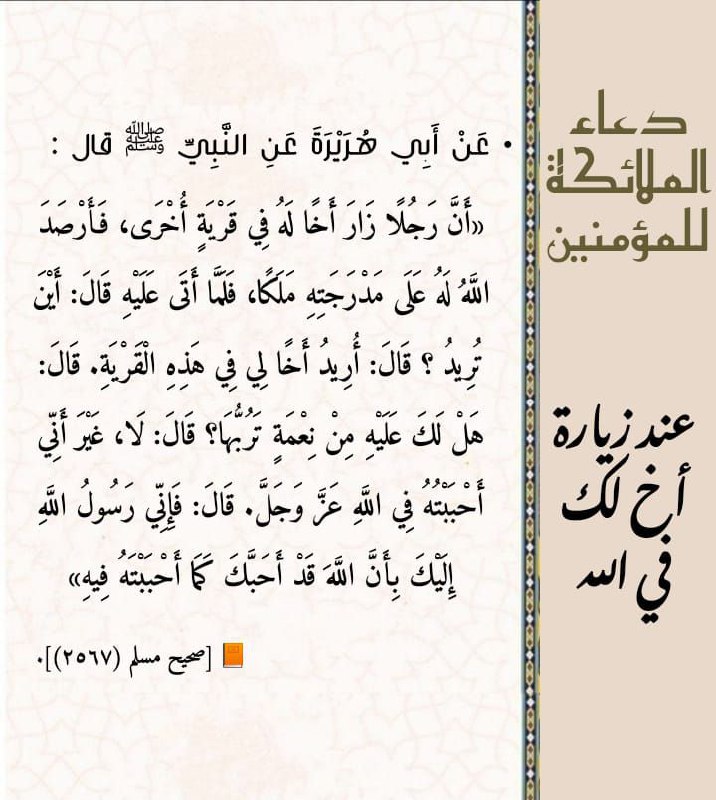 دعاء
الملائكة
للمؤمنين
عند زيارة
أخ لك
في الله
• عَنْ أَبِي هُرَيْرَةَ عَنِ النَّبِيِّ ﷺ قال :
«أَنَّ رَجُلًا زَارَ أَخًا لَهُ فِي قَرْيَةٍ أُخْرَى، فَأَرْصَدَ
اللَّهُ لَهُ عَلَى مَدْرَجَتِهِ مَلَكًا، فَلَمَّا أَتَى عَلَيْهِ قَالَ: أَيْنَ
تُرِيدُ ؟ قَالَ: أُرِيدُ أَخًا لِي فِي هَذِهِ الْقَرْيَةِ. قَالَ:
هَلْ لَكَ عَلَيْهِ مِنْ نِعْمَةٍ تَرُبُّهَا؟ قَالَ: لَا، غَيْرَ أَنِّي
أَحْبَبْتُهُ فِي اللَّهِ عَزَّ وَجَلَّ. قَالَ: فَإِنِّي رَسُولُ اللَّهِ
إِلَيْكَ بِأَنَّ اللَّهَ قَدْ أَحَبَّكَ كَمَا أَحْبَبْتَهُ فِيهِ»
📙 [صحيح مسلم (٢٥٦٧)].